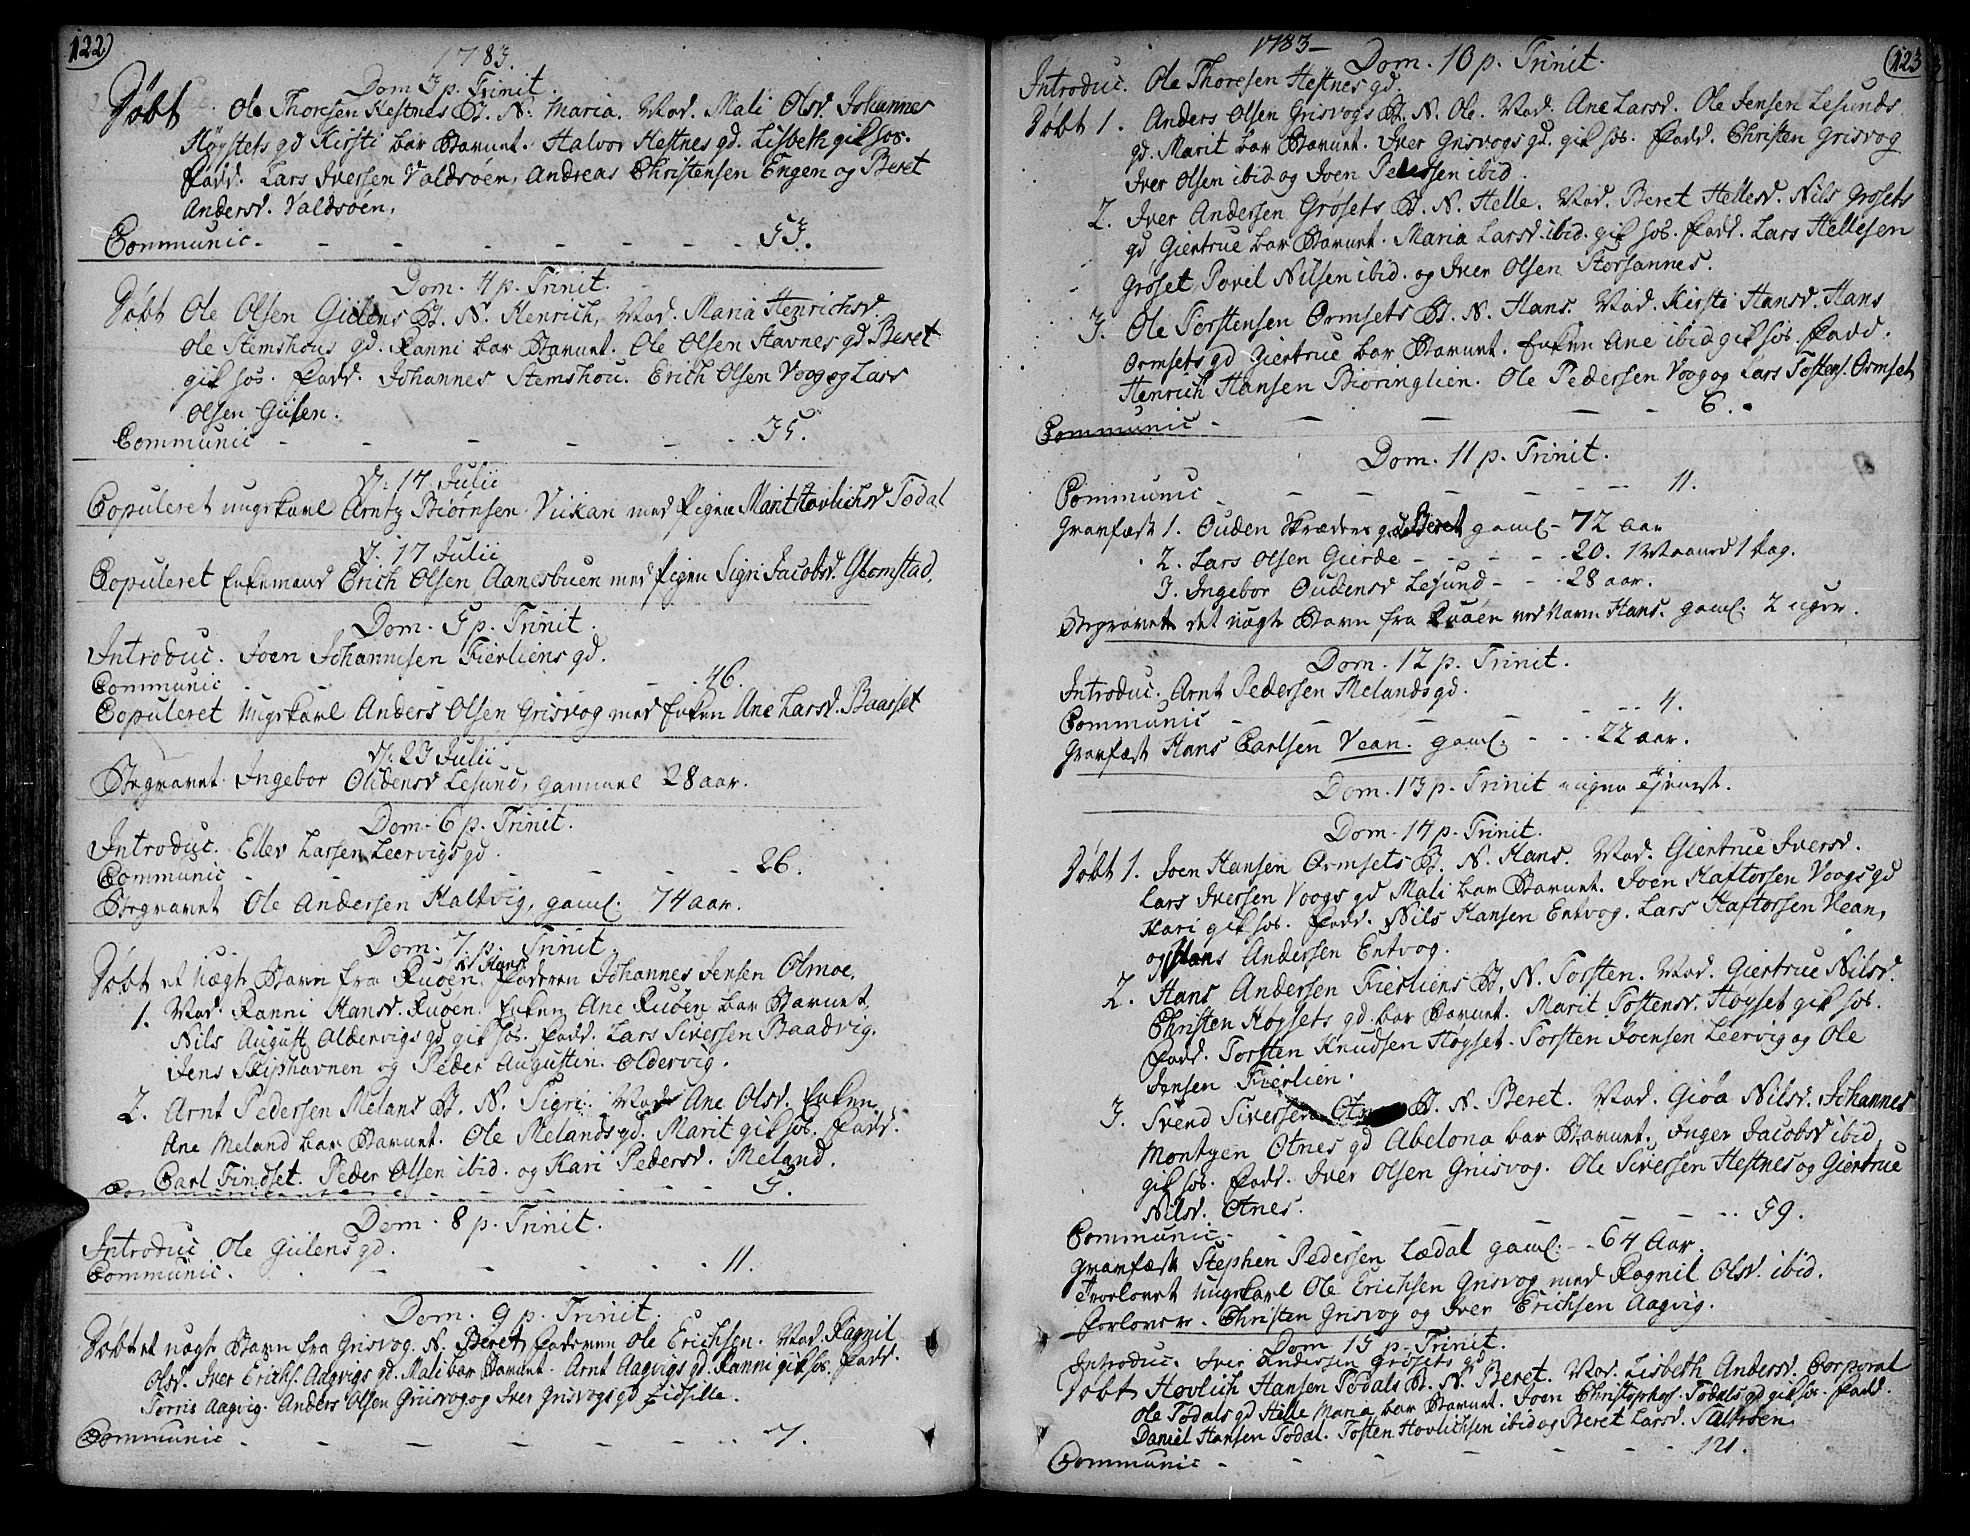 122)
1783.
Dom 3 p. Trinit.
Døbt. Ole Thoresen Hestnes B. N. Maria. Mod. Mali Olsd. Johannes
Høysets gd Kirsti bar Barnet. Halvor Hestnes gd. Lisbeth gik hos.
Fadd. Lars Iversen Valdsøen, Andreas Christensen Engen og Beret
Andersd. Valdsøen.
Communic. - - - - - - 53.
Dom. 4 p. Trinit.
Døbt Ole Olsen Giilens B. N. Henrich, Mod. Maria Henrichsd.
Ole Stemshous gd. Ranni bar Barnet. Ole Olsen Stavnes gd Beret
gik hos. Fadd. Johannes Stemshou. Erich Olsen Voog og Lars
Olsen Giilen.
Communic - - - - - - 35.
D. 14 Julii
Copuleret ungekarl Arntz Biørnsen Viikan med Pigen Marit Hovlichsd Todal
D. 17 Julii
Copuleret Enkemand Erich Olsen Aanesbuen med Pigen Sigri Jacobsd. Glomstad.
Dom. 5 p. Trinit.
Introduc. Joen Johannesen Fierliens gd.
Communic - - - - 46.
Copuleret Ungekarl Anders Olsen Grisvog med Enken Ane Larsd. Baarset
D. 23 Julii
Begravet Ingebor Oudensd Lesund, gammel 28 aar.
Dom. 6 p. Trinit.
Introduc. Ellev Larsen Leervigs gd.
Communic - - - - - - 26.
Begravet Ole Andersen Kaltvig, gaml. 74 aar.
Dom. 7 p. Trinit.
Døbt et uægte Barn fra Ruøen. N. Hans. Faderen Johannes Jensen Olmoe.
1. Mod. Ranni Hansd. Ruøen. Enken Ane Ruøen bar Barnet
Nils August Aldervigs gd gik hos. Fadd. Lars Siversen Baadvig.
Jens Skiphavnen og Peder Augustin. Oldervig.
2. Arnt Pedersen Melans B. N. Sigri. Mod Ane Olsd. Enken
Ane Meland bar Barnet. Ole Melands gd. Marit gik hos. Fadd.
Carl Findset. Peder Olsen ibid. og Kari Pedersd. Meland.
Communicantere - - - - - 5.
Dom. 8 p. Trinit.
Introduc Ole Giilens gd.
Communic. - - - - - 11.
Dom. 9 p. Trinit.
Døbt et uægte Barn fra Grisvog. N. Beret, Faderen Ole Erichsen. Mod. Ragnil
Olsd. Iver Erichs. Aagvigs gd. Mali bar Barnet. Arnt Aagvigs gd. Ranni gik hos. Fadd.
Torris Aagvig. Anders Olsen Grisvog og Iver Grisvogs gd Zidsille.
Communic - - - - - - 7.
1783 -
(123
Dom. 10 p. Trinit.
Introduc. Ole Thoresen Hestnes gd.
Døbt 1. Anders Olsen Grisvogs B. N. Ole. Mod. Ane Larsd. Ole Jensen Lesunds
gd. Marit bar Barnet. Iver Grisvogs gd. gik hos. Fadd. Christen Grisvog
Iver Olsen ibid og Joen Pedersen ibid.
2. Iver Andersen Grøsets B. N. Helle. Mod. Beret Hellesd. Nils Grøsets
gd, Giertrue bar Barnet. Maria Larsd. ibid. gik hos. Fadd. Lars Hellesen
Grøset, Povel Nilsen ibid. og Iver Olsen Storsannes.
3. Ole Torstensen Ormsets B. N. Hans. Mod. Kirsti Hansd. Hans
Ormsets gd Giertrue bar Barnet. Enken Ane ibid gik hos. Fadd.
Henrich Hansen Biøringlien. Ole Pedersen Voog og Lars Tostens. Ormset
Communic - - - - 6.
Dom. 11 p. Trinit.
Communic - - - - - - 11.
Gravfæst 1. Ouden Skræders gd Beret gaml - 72 aar
2. Lars Olsen Gierde - - - - - 20. 1 Maaned 1 dag.
3. Ingebor Oudensd Lesund - - - 28 aar.
Begravet det uægte Barn fra Ruøen ved Navn Hans. gaml. 2 uger.
Dom. 12 p. Trinit.
Introduc. Arnt Pedersen Melands gd.
Communic - - - - - - 4.
Gravfæst Hans Carlsen Vean. gaml. - - - 22 aar.
Dom. 13 p. Trinit ingen tieneste.
Dom. 14 p. Trinit.
Døbt 1. Joen Hansen Ormsets B. N. Hans. Mod. Giertrue Iversd.
Lars Iversen Voogs gd Mali bar Barnet. Joen Haftorsen Voogs gd
Kari gik hos. Fadd. Nils Hansen Entvog. Lars Haftorsen Vean,
og Hans Andersen Entvog.
2. Hans Andersen Fierliens B. N. Torsten. Mod. Giertrue Nilsd.
Christen Høysets gd. bar Barnet. Marit Tostensd. Høyset gik hos.
Fadd. Torsten Knudsen Høyset. Torsten Joensen Leervig og Ole
Jensen Fierlien.
3. Svend Siversen Otnes B. N. Beret. Mod. Giøa Nilsd. Johannes
Montyen Otnes gd Abelona bar Barnet. Inger Jacobsd ibid
gik hos. Fadd. Iver Olsen Grisvog. Ole Siversen Hestnes og Giertrue
Nilsd. Otnes.
Communic - - - - - - 59.
Gravfæst Stephen Pedersen Lædal gaml. - - 64 Aar.
Trorlovet ungekarl Ole Erichsen Grisvog med Ragnil Olsd. ibid.
Forlovere. Christen Grisvog og Iver Erichsen Aagvig.
Dom 15 p. Trinit.
Introduc. Iver Andersen Grøsets gd.
Døbt Hovlich Hansen Todals B. N. Beret. Mod. Lisbeth Andersd. Corporal
Ole Todals gd Hille Maria bar Barnet. Joen Christophers. Todals gd gik hos. Fadd.
Daniel Hansen Todal. Tosten Hovlichsen ibid og Beret Larsd. Taftrøen
Communic - - - - - - 121.